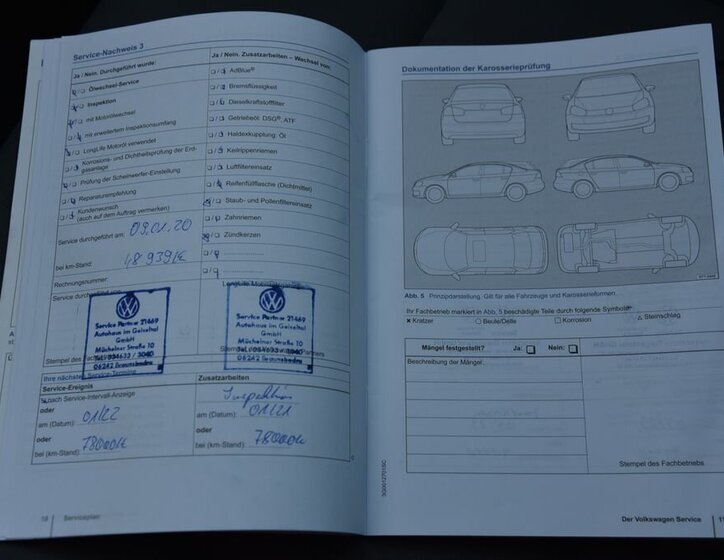 Service-Nachweis 3
Ja / Nein. Durchgeführt wurde:
Ölwechsel-Service
Inspektion
mit Motorölwechsel
mit erweitertem Inspektionsumfang
LongLife Motoröl verwendet
Korrosions- und Dichtheitsprüfung der Erdgasanlage
Prüfung der Scheinwerfer-Einstellung
Reparaturempfehlung
Kundenwunsch
(auch auf dem Auftrag vermerken)
Service durchgeführt am: 09.01.20
bei km-Stand: 48 939
Rechnungsnummer:
Service durchgeführt
Ja / Nein. Zusatzarbeiten – Wechsel von:
AdBlue®
Bremsflüssigkeit
Dieselkraftstofffilter
Getriebeöl: DSG®, ATF
Haldexkupplung: Öl
Keilrippenriemen
Luftfiltereinsatz
Reifenfüllflasche (Dichtmittel)
Staub- und Pollenfiltereinsatz
Zahnriemen
Zündkerzen
Service Partner 21469
Autohaus im Geiseltal
GmbH
Müchelner Straße 10
06242 Braunsbedra
Service Partner 21469
Autohaus im Geiseltal
GmbH
Müchelner Straße 10
06242 Braunsbedra
Stempel des
Ihre nächsten Service-Termine
Service-Ereignis
nach Service-Intervall-Anzeige
oder
am (Datum): 01/22
oder
bei (km-Stand): 78000
Zusatzarbeiten
Inspektion
am (Datum): 01/21
oder
bei (km-Stand): 78000
18 Serviceplan
Dokumentation der Karosserieprüfung
Abb. 5 Prinzipdarstellung: Gilt für alle Fahrzeuge und Karosserieformen.
Ihr Fachbetrieb markiert in Abb. 5 beschädigte Teile durch folgende Symbole:
× Kratzer ○ Beule/Delle □ Korrosion △ Steinschlag
Mängel festgestellt? Ja: Nein:
Beschreibung der Mängel:
Stempel des Fachbetriebs
Der Volkswagen Service